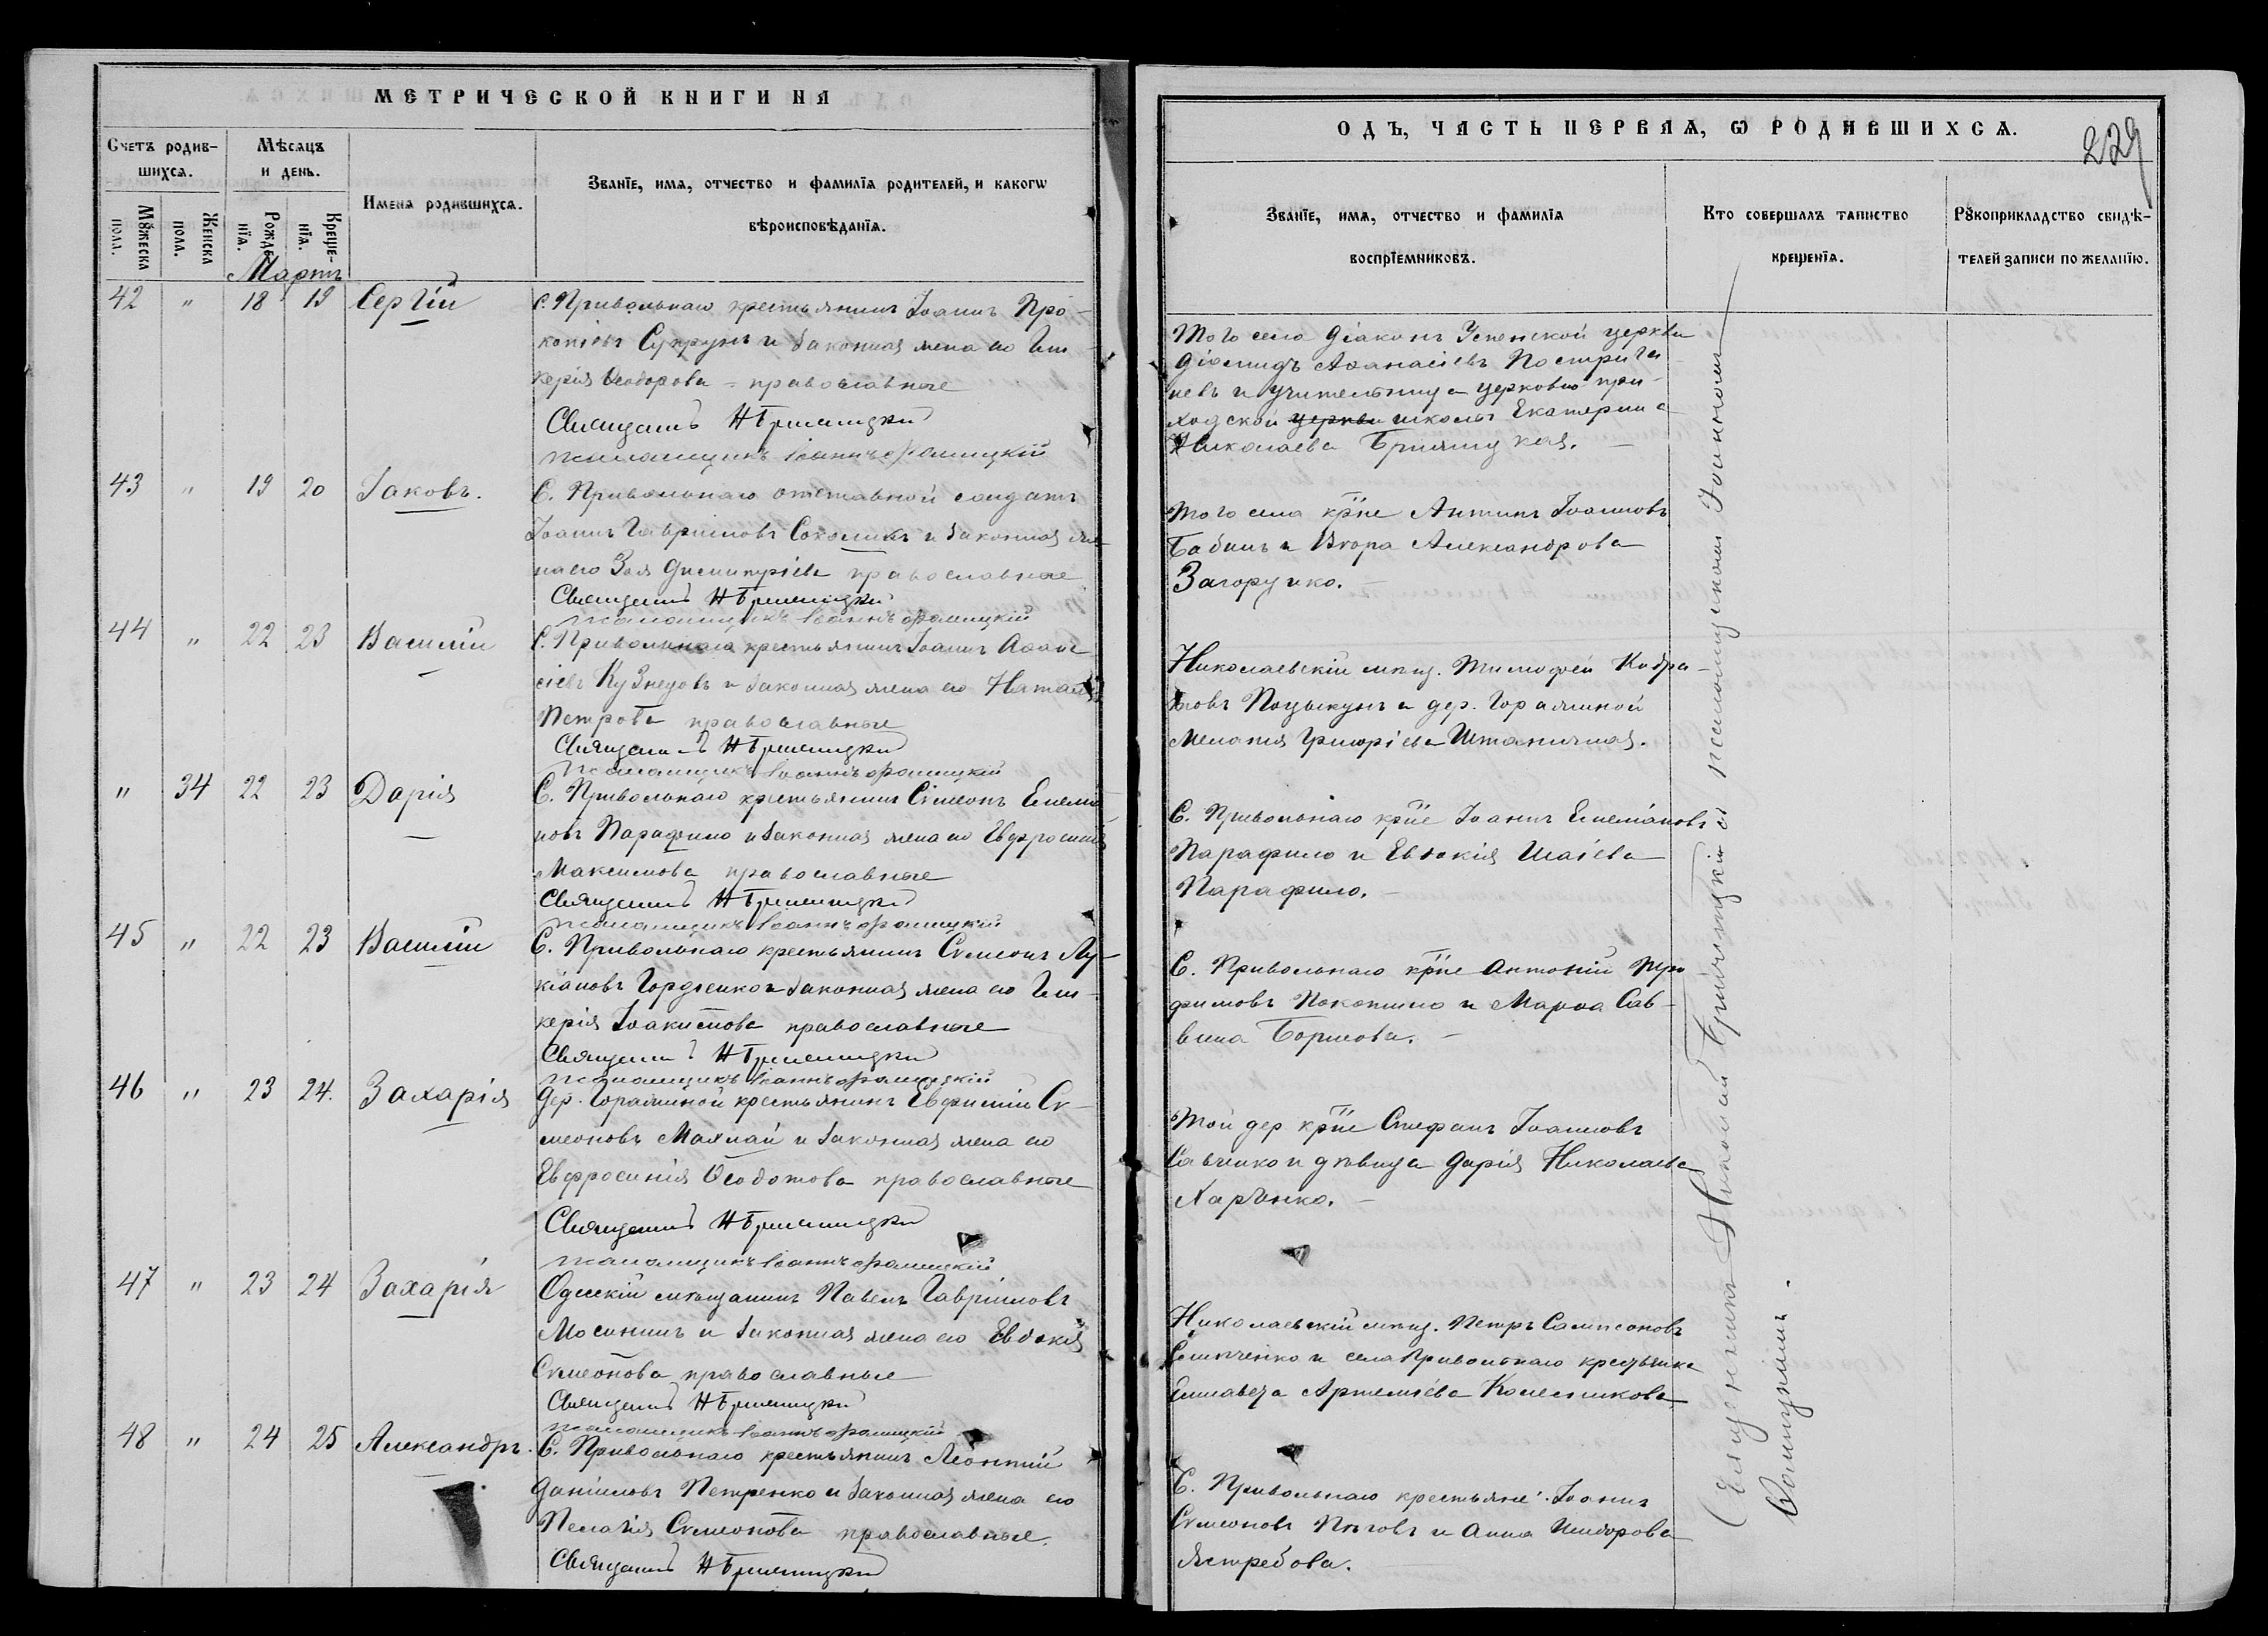 МЕТРИЧЕСКОЙ КНИГИ НА
Счетъ родив-
шихсѧ.
Мѣсѧцъ
и день.
Мꙋжеска
пола.
Женска
пола.
Рожде-
нїѧ.
Креще-
нїѧ.
Имена родившихсѧ.
Званїе, имѧ, отчество и фамилїѧ родителей, и какогѡ
вѣроисповѣданїѧ.
Мартъ
42 " 18 19 Сергій
С. Привольнаго крестьянинъ Іоаннъ Про-
копіевъ Супрунъ и законная жена его Гли-
керія Ѳеодорова - православные
Священникъ Н Бришицкій
псаломщикъ Іоаннъ
43 " 19 20 Іаковъ.
С. Привольнаго отставной солдатъ
Іоаннъ Гавріиловъ и законная же-
на его Зоя Димитріева православные
Священникъ Н
псаломщикъ Іоаннъ
44 " 22 23 Василій
С. Привольнаго крестьянинъ Іоаннъ Аѳана-
сіевъ Кузнецовъ и законная жена его Наталія
Петрова православные
Священникъ Н
псаломщикъ Іоаннъ
" 34 22 23 Дарія
С. Привольнаго крестьянинъ Сѵмеонъ Емелiа-
новъ Парафило и законная жена его Евфросинія
Максимова православные
Священникъ Н
псаломщикъ Іоаннъ
45 " 22 23 Василій
С. Привольнаго крестьянинъ Сѵмеонъ Лу-
кіановъ Гордіенко и законная жена его Гли-
керія Іоакимова православные
Священникъ Н
псаломщикъ Іоаннъ
46 " 23 24. Захарія
Дер. Горожиной крестьянинъ Евфимій Сѵ-
меоновъ Махнай и законная жена его
Евфросинія Ѳеодотова православные
Священникъ Н
псаломщикъ Іоаннъ
47 " 23 24 Захарія
Одесскій мѣщанинъ Павелъ Гавріиловъ
Мосинъ и законная жена его Евдокія
Сѵмеонова православные
Священникъ Н
псаломщикъ Іоаннъ
48 " 24 25 Александръ.
С. Привольнаго крестьянинъ Леонтій
Даніиловъ Петренко и законная жена его
Пелагія Сѵмеонова православные.
Священникъ Н
ОДЪ, ЧАСТЬ ПЕРВАѦ, Ѡ РОДИВШИХСѦ.
229
Званїе, имѧ, отчество и фамилїѧ
воспрїемниковъ.
Кто совершалъ таинство
крещенїѧ.
Рꙋкоприкладство свидѣ-
телей записи по желанїю.
Того села діаконъ Успенской церкви
Діомидъ Аѳанасіевъ Постриги-
невъ и учительница церковно при-
ходской церкви школы Екатерина
Николаева
Того села кр̅не Антипъ Іоанновъ
Бабинъ и Ѳвора Александрова
Загоруйко.
Николаевскій мѣщ. Тимофей Кодра-
товъ Поцыкунъ и дер. Горожиной
Меланія Григоріева
С. Привольнаго кр̅не Іоаннъ Емеліановъ
Парафило и Евдокія Исаіева
Парафило.
С. Привольнаго кр̅не Антоній Тро-
фимовъ и Марѳа Сав-
вина
Той дер кр̅не Стефанъ Іоанновъ
Савченко и дѣвица Дарія Николаева
Харченко.
Николаевскій мѣщ. Петръ Сампсоновъ
и села Привольнаго крестьянка
Елисавета Артеміева Колесникова
С. Привольнаго крестьяне: Іоаннъ
Сѵмеоновъ и Анна Исидорова
Ястребова.
Священникъ Николай съ псаломщикомъ Іоанномъ